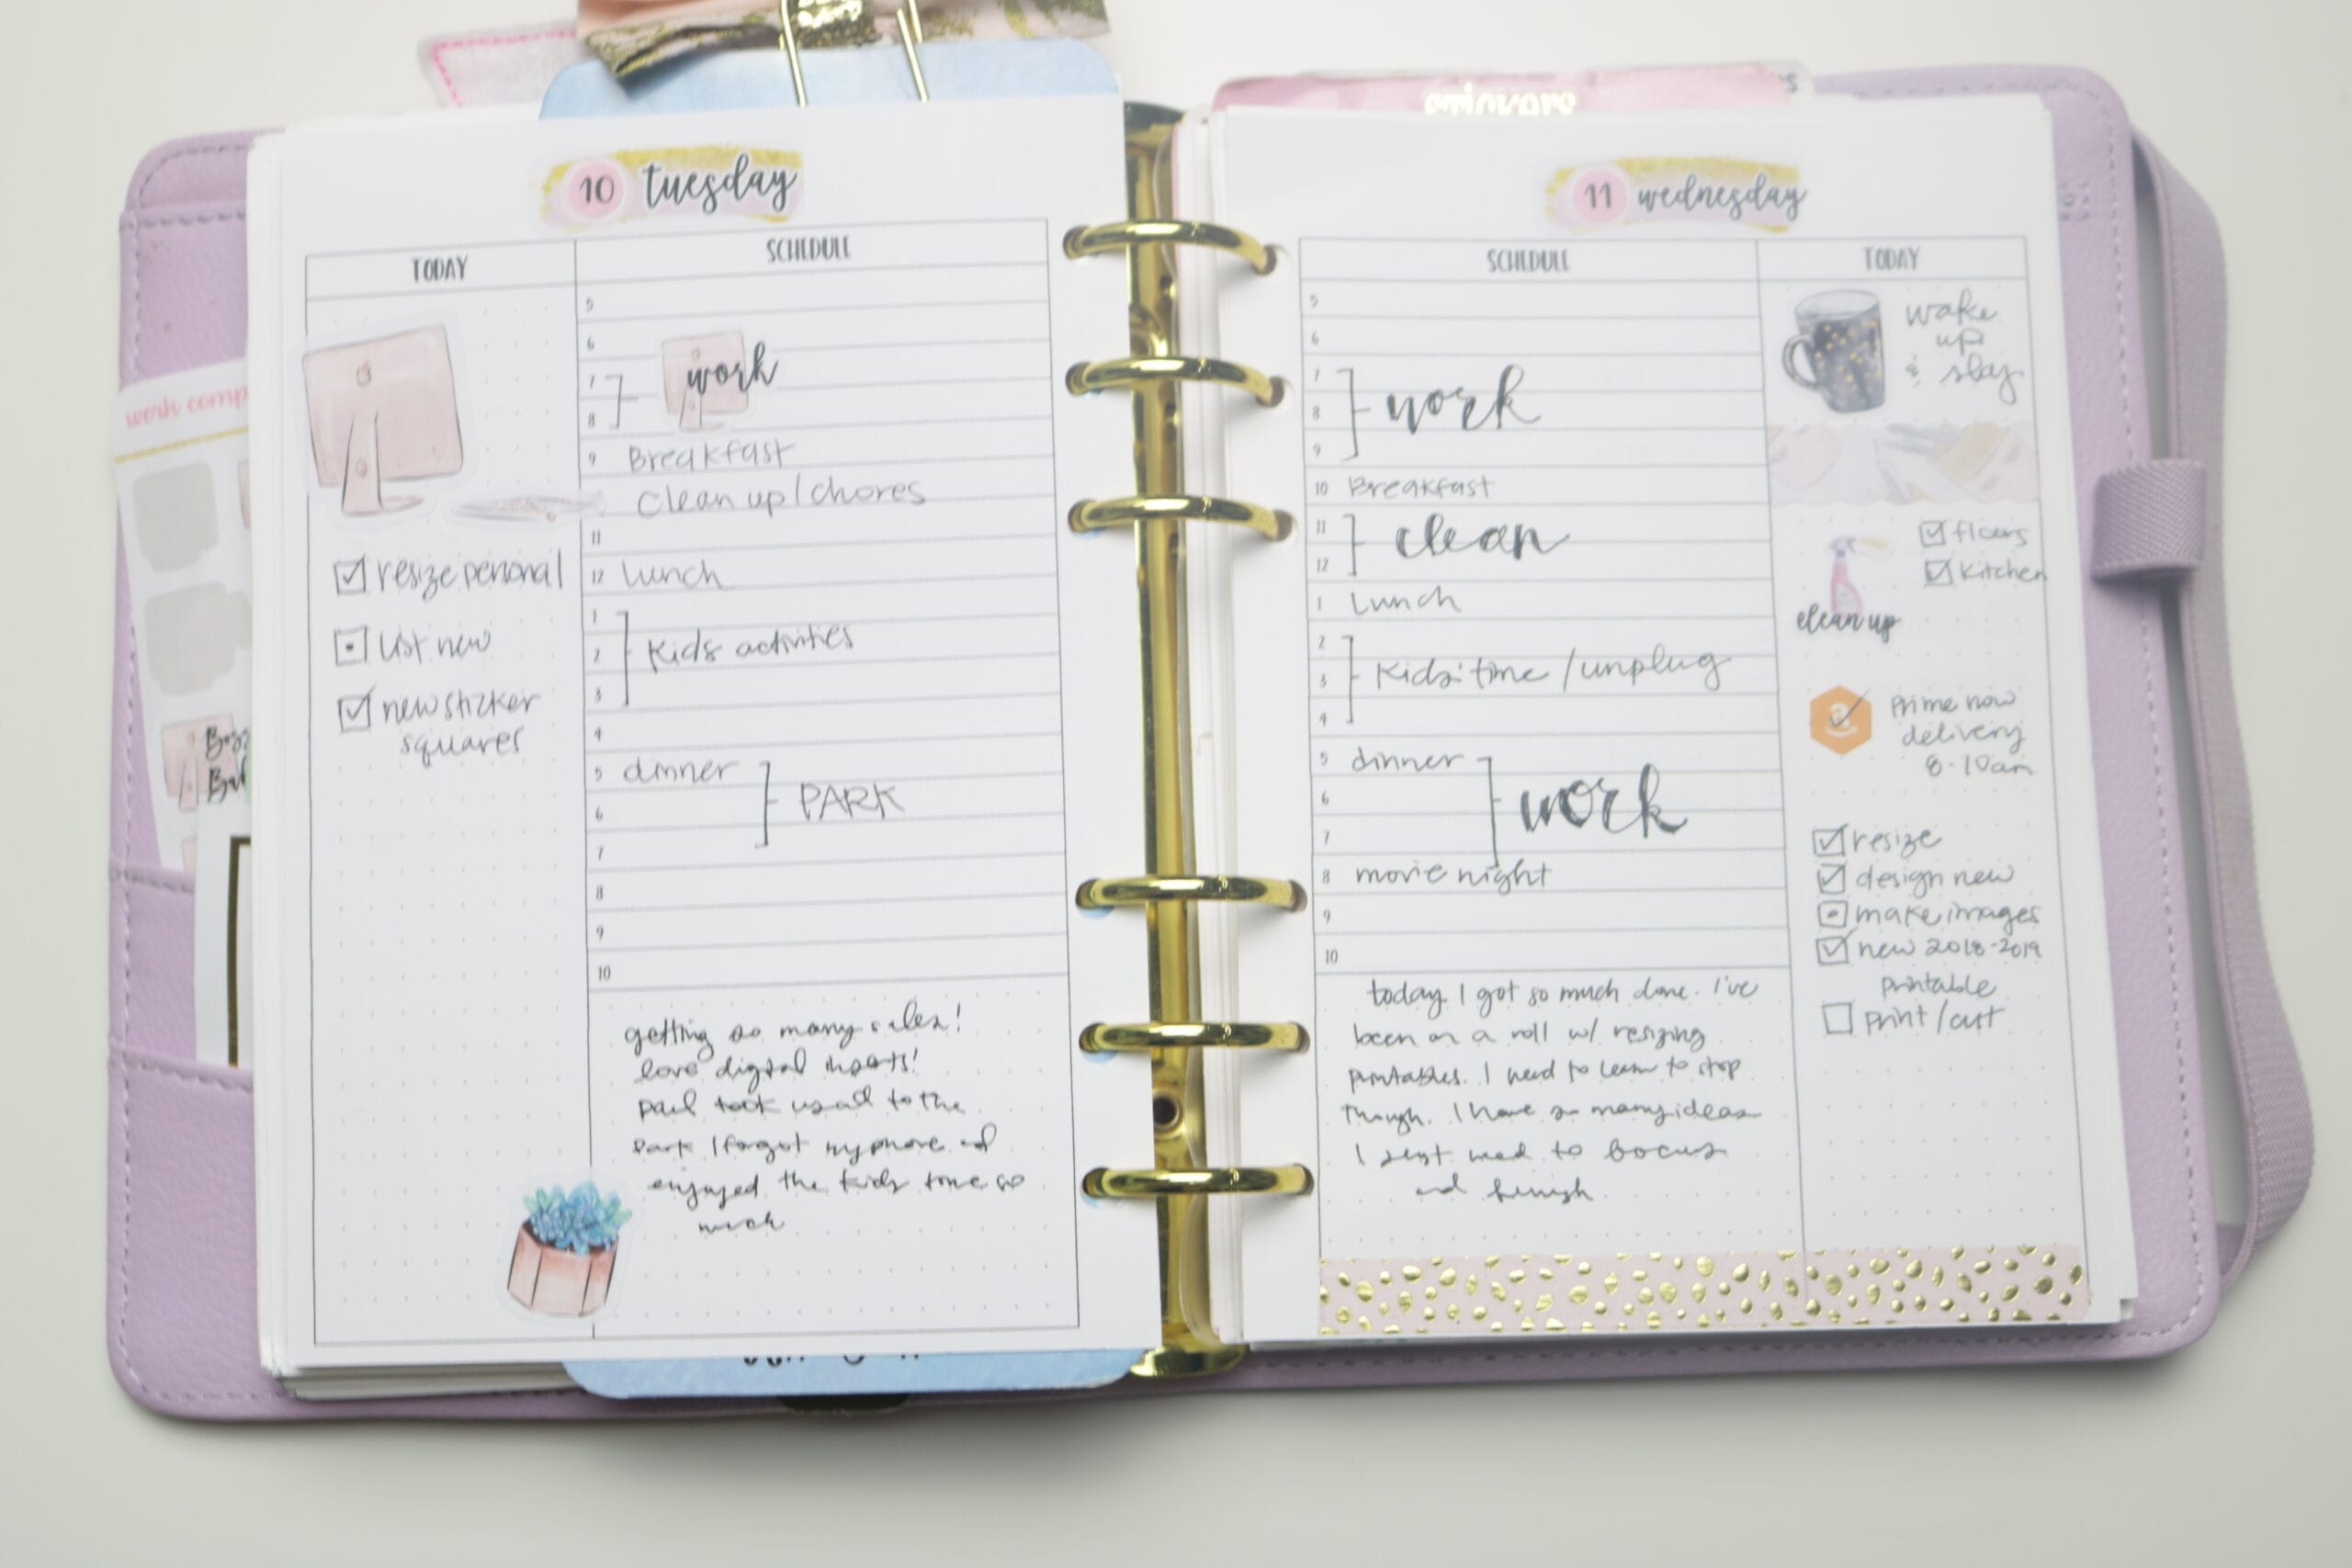 stickers
work comp
10 tuesday
TODAY
SCHEDULE
5
6
work
7
8
9 Breakfast
Clean up / chores
11
12 Lunch
1
2 Kids activities
3
4
5 dinner
6 PARK
7
8
9
10
resize personal
list new
new sticker
squares
getting so many sales!
love digital inserts!
paul took us all to the
park I forgot my phone and
enjoyed the kids time so
much
11 wednesday
SCHEDULE
TODAY
5
6
7
8 work
9
10 Breakfast
11 clean
12
1 Lunch
2
3 Kids' time / unplug
4
5 dinner
6 work
7
8 movie night
9
10
today I got so much done. I've
been on a roll w/ resizing
printables. I need to learn to stop
though. I have so many ideas
I just need to focus
and finish
wake
up
& slay
floors
Kitchen
clean up
Prime now
delivery
8-10am
resize
design new
make images
new 2018-2019
printable
print/cut